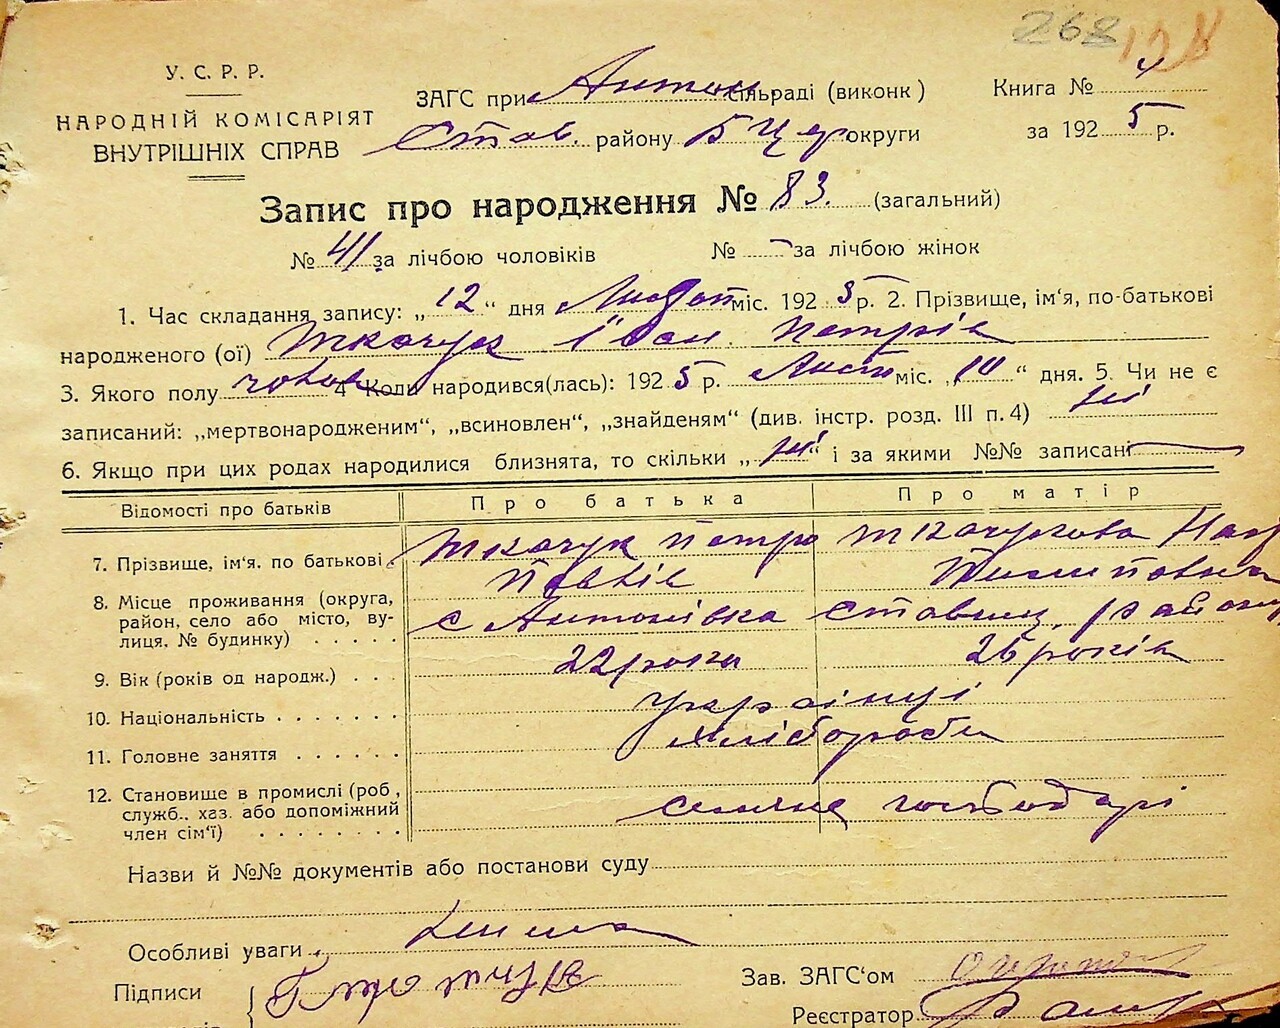 268 128
У. С. Р. Р.
НАРОДНІЙ КОМІСАРІЯТ
ВНУТРІШНІХ СПРАВ
ЗАГС при Антон. сільраді (виконк)
Став. району БЦер округи
Книга №
за 1925 р.
Запис про народження № 83. (загальний)
№ 41 за лічбою чоловіків № - за лічбою жінок
1. Час складання запису: „12“ дня Листоп міс. 1925 р. 2. Прізвище, ім‘я, по-батькові
народженого (ої) Ткачук Іван Петрів
3. Якого полу чолов 4 Коли народився(лась): 1925 р. Лист міс. „10“ дня. 5. Чи не є
записаний: „мертвонародженим“, „всиновлен“, „знайденям“ (див. інстр. розд. III п. 4) ні
6. Якщо при цих родах народилися близнята, то скільки „ні“ і за якими №№ записані
Відомості про батьків Про батька Про матір
7. Прізвище, ім‘я. по батькові Ткачук Петро Ткачукова
Павлів Пилиповна
8. Місце проживання (округа,
район, село або місто, ву-
лиця. № будинку) . . . . . с Антонівка Ставищ. району
9. Вік (років од народж.) . . . 22 роки 26 років
10. Національність . . . . . . . українці
11. Головне заняття . . . . . . хлібороби
12. Становище в промислі (роб.,
служб.. хаз. або допоміжний
член сім‘ї) . . . . . . . . господарі
Назви й №№ документів або постанови суду
Особливі уваги
Підписи
Зав. ЗАГС‘ом
Реєстратор